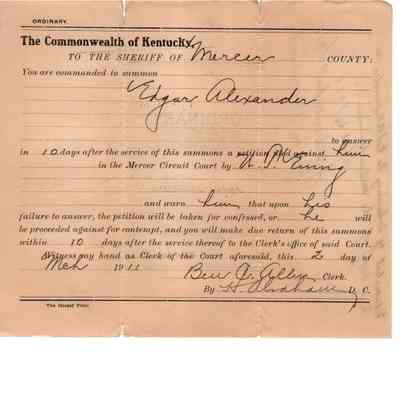 ORDINARY.
The Commonwealth of Kentucky,
TO THE SHERIFF OF Mercer COUNTY:
You are commanded to summon
Edgar Alexander
to answer
in 10 days after the service of this summons a petition filed against him
in the Mercer Circuit Court by
and warn him that upon his
failure to answer, the petition will be taken for confessed, or he will
be proceeded against for contempt, and you will make due return of this summons
within 10 days after the service thereof to the Clerk's office of said Court.
Witness my hand as Clerk of the Court aforesaid, this 2 day of
Mch 1911 Ben C. Allin Clerk.
By D. C.
The Herald Print.